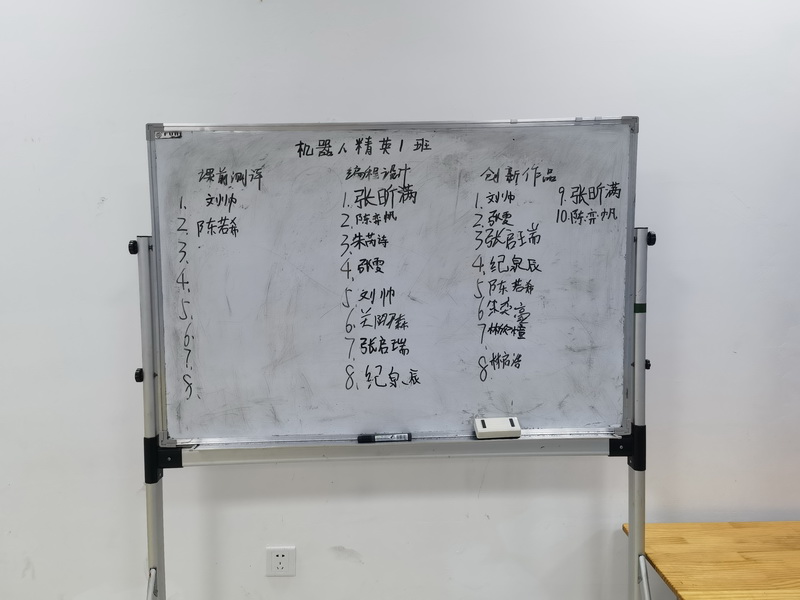 机器人精英1班
课前测评
1. 刘帅
2. 陈若希
3.
4.
5.
6.
7.
8.
编程设计
1. 张昕满
2. 陈弈帆
3. 朱芮诗
4. 张雯
5. 刘帅
6.
7. 张启瑞
8. 纪泉辰
创新作品
1. 刘帅
2. 张雯
3 张启瑞
4. 纪泉辰
5 陈若希
6 朱奕豪
7
8 林启
9. 张昕满
10. 陈弈帆